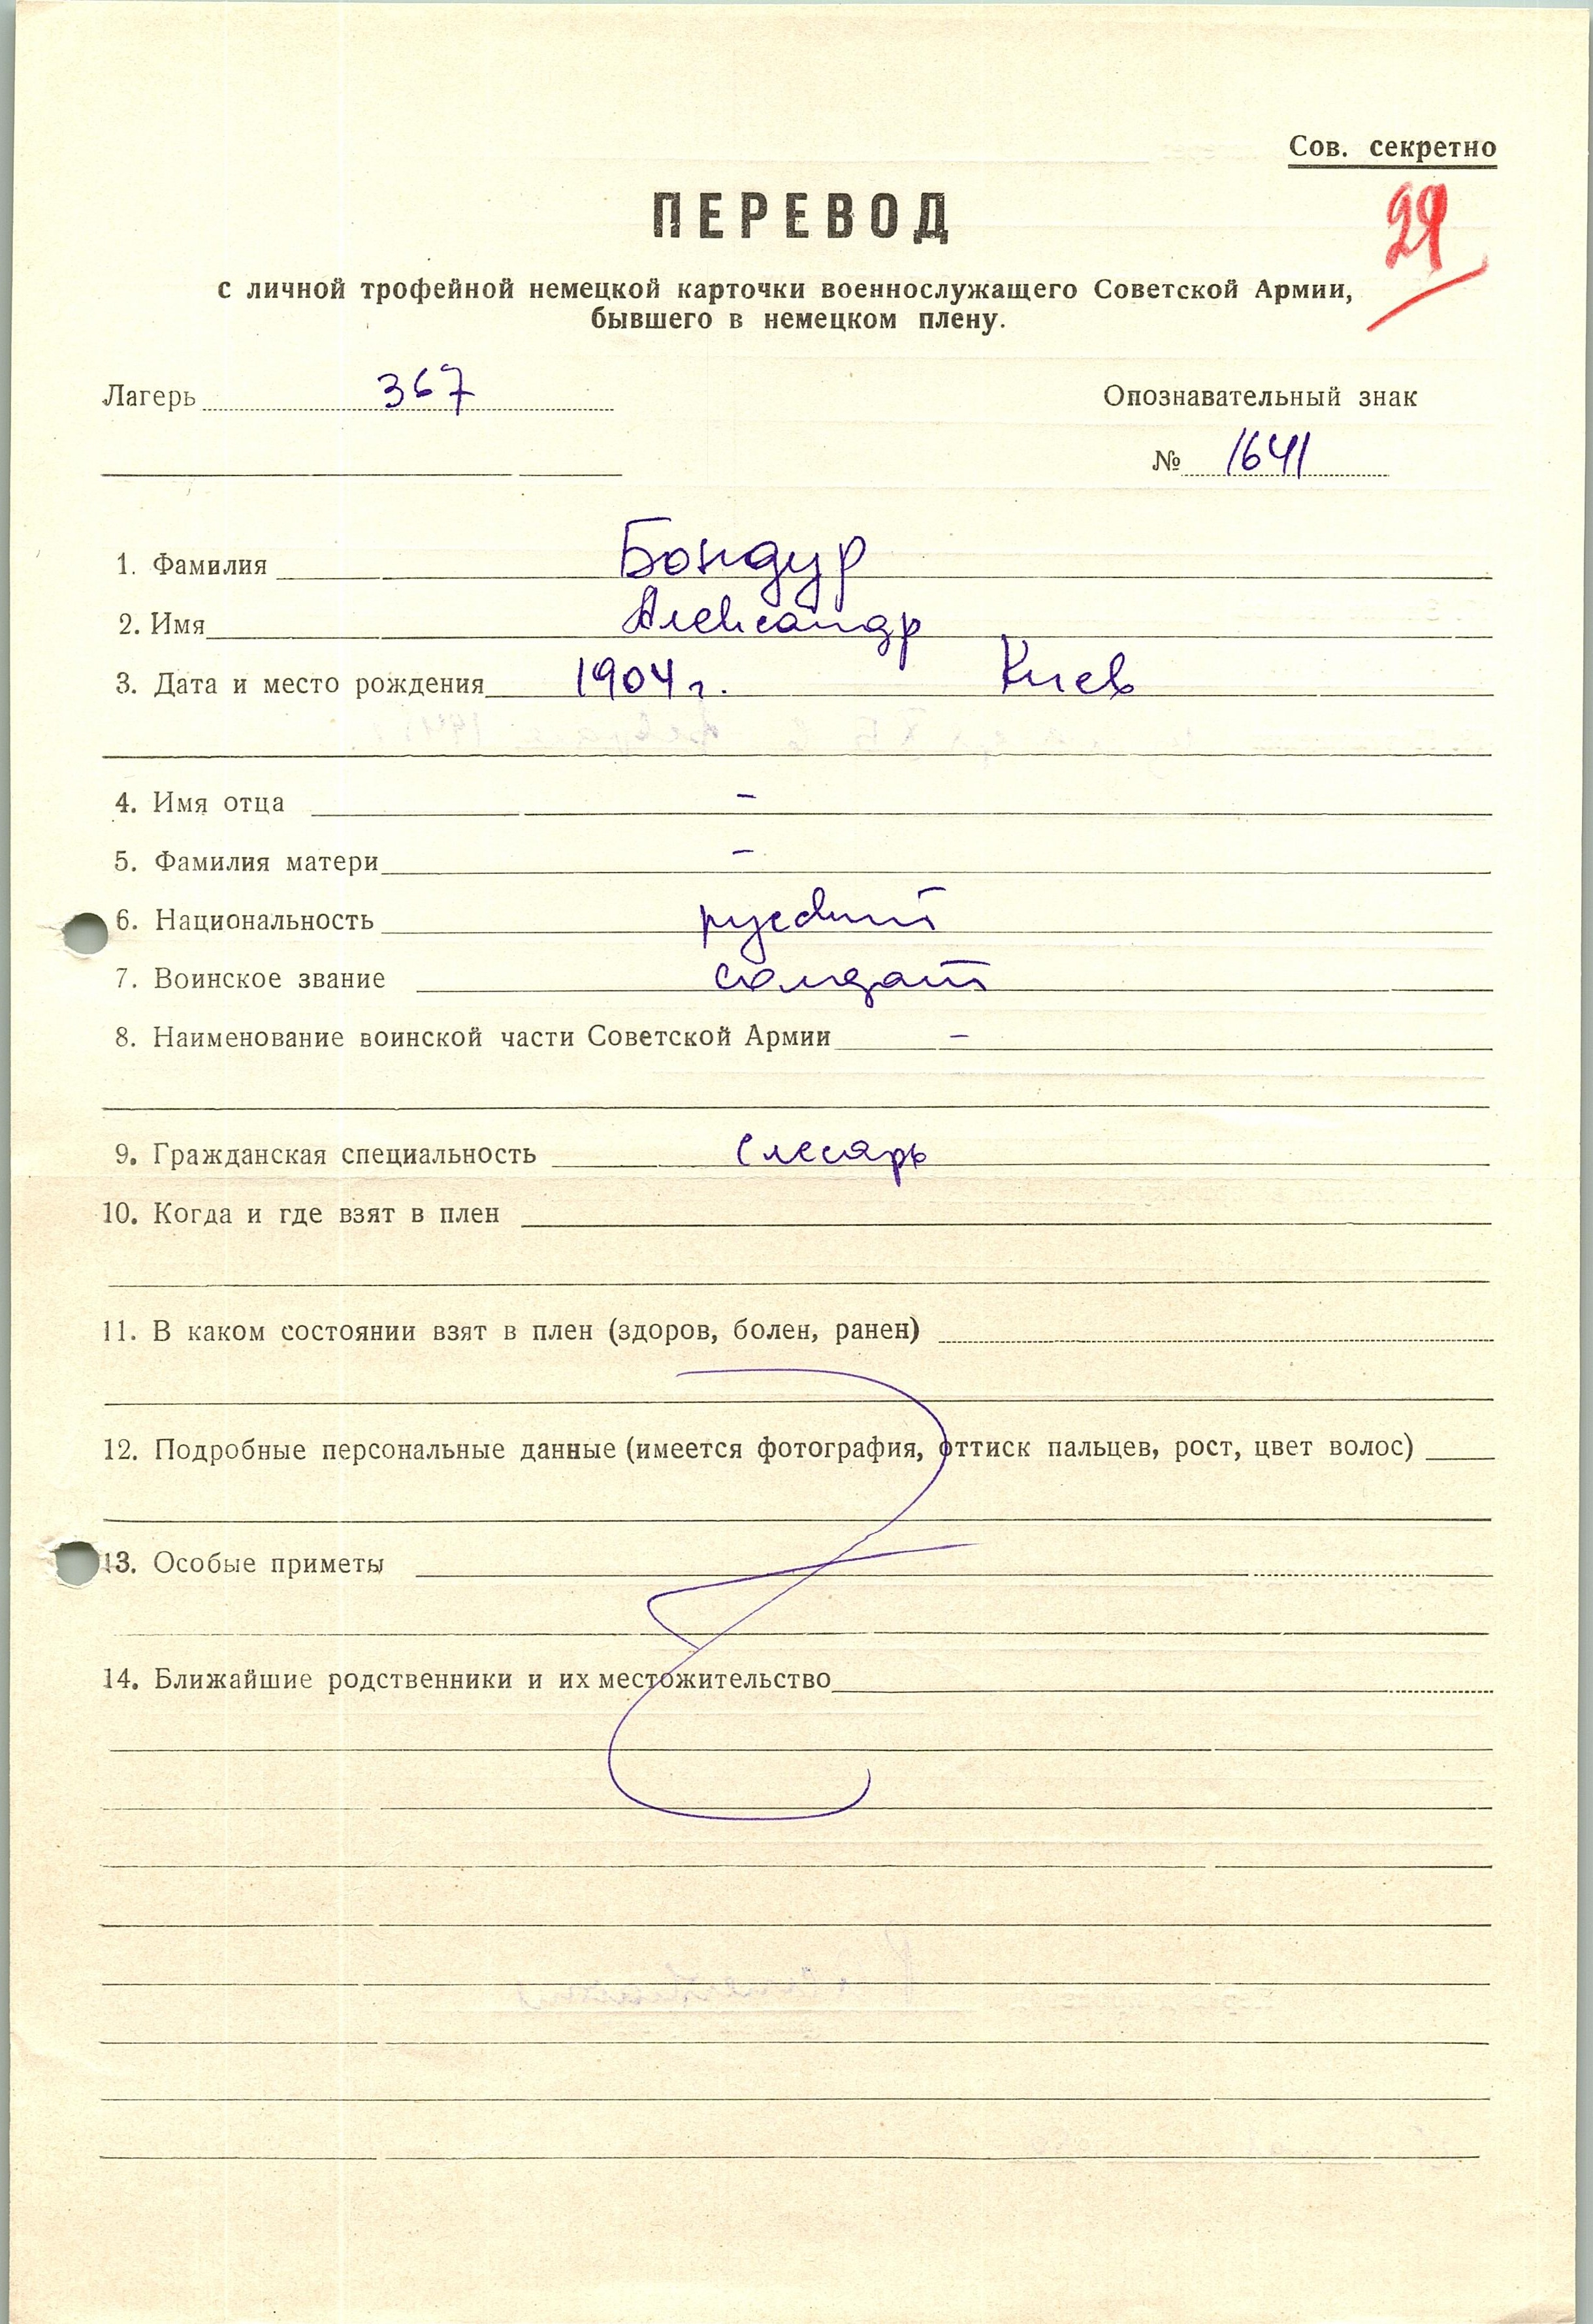 Сов. секретно
ПЕРЕВОД
с личной трофейной немецкой карточки военнослужащего Советской Армии,
бывшего в немецком плену.
Лагерь 367 Опознавательный знак
№ 1641
1. Фамилия Бондур
2. Имя Александр
3. Дата и место рождения 1904 г. Киев
4. Имя отца –
5. Фамилия матери –
6. Национальность русский
7. Воинское звание солдат
8. Наименование воинской части Советской Армии –
9. Гражданская специальность слесарь
10. Когда и где взят в плен
11. В каком состоянии взят в плен (здоров, болен, ранен)
12. Подробные персональные данные (имеется фотография, оттиск пальцев, рост, цвет волос)
13. Особые приметы
14. Ближайшие родственники и их местожительство